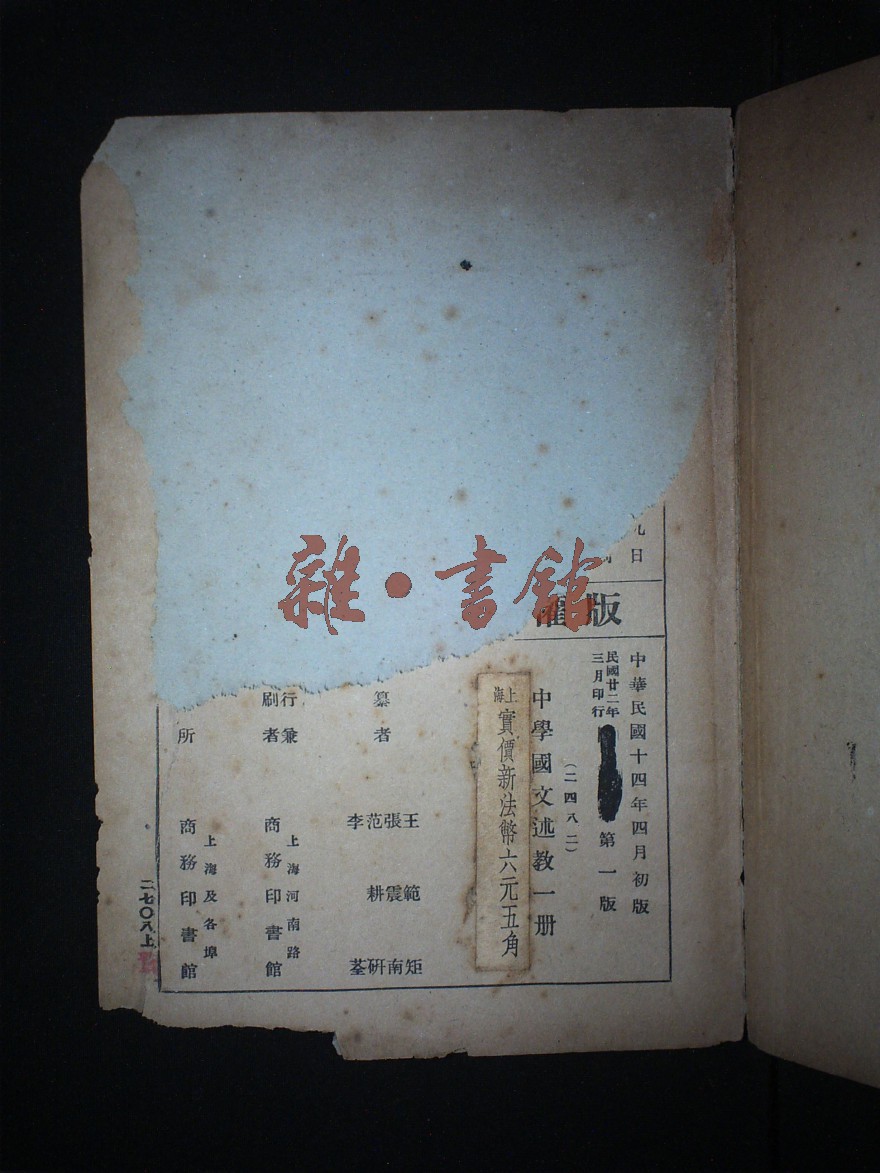 日
版
中華民國十四年四月初版
民國廿二年
三月印行
第一版
中學國文述教一册
(二四八二)
上海實價新法幣六元五角
纂者
王範矩
張震南
范耕研
李荃
行兼
刷者
上海河南路
商務印書館
所
上海及各埠
商務印書館
二七〇八上
雜•書館